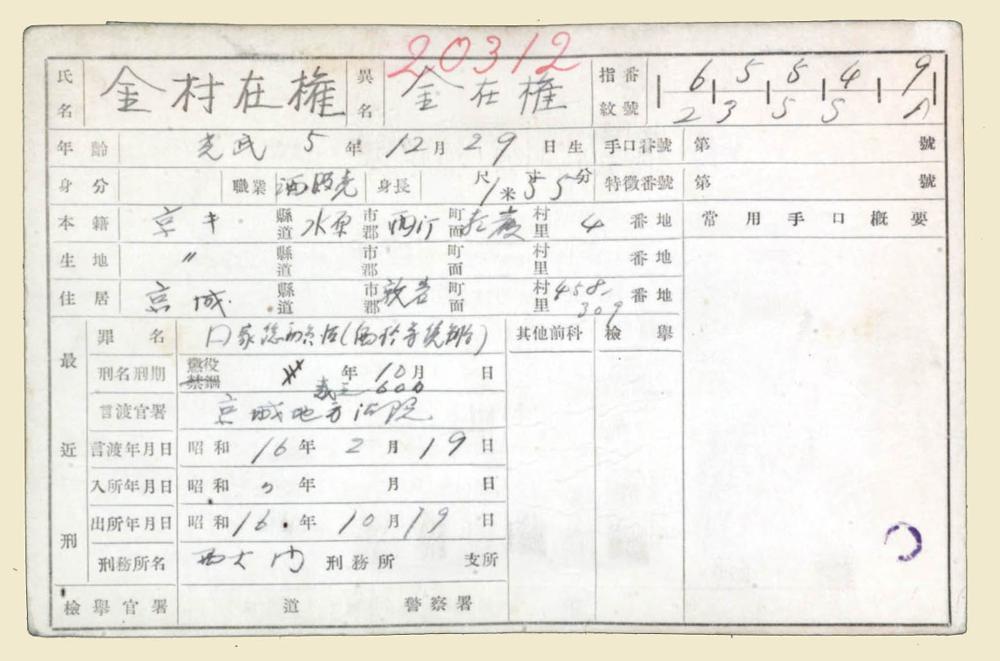 20312
氏名 金村在權 異名 金在權 指紋番號 6 5 5 4 9
2 3 5 5 A
年齡 光武 5年 12月 29日生 手口番號 第 號
身分 職業 酒販売 身長 尺 1米 寸 55 分 特徴番號 第 號
本籍 京キ 縣道 水原 市郡 西 町面 村里 4 番地 常用手口概要
生地 〃 縣道 市郡 町面 村里 番地
住居 京城 縣道 市郡 敦岩 町面 村里 458-309 番地
最近刑
罪名 其他前科 檢擧
刑名刑期 懲役 禁錮 年 10月 日
600
言渡官署 京城地方法院
言渡年月日 昭和 16年 2月 19日
入所年月日 昭和 〃年 月 日
出所年月日 昭和 16年 10月 19日
刑務所名 西大門 刑務所 支所
檢擧官署 道 警察署